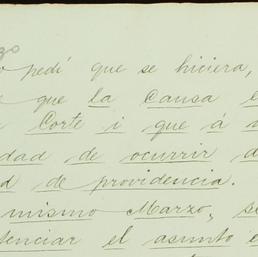 pedí que se hiciera,
que la causa
Corte i que á
dad de ocurrir d
d de providencia.
mismo Marzo, se
tenciar el asunto e